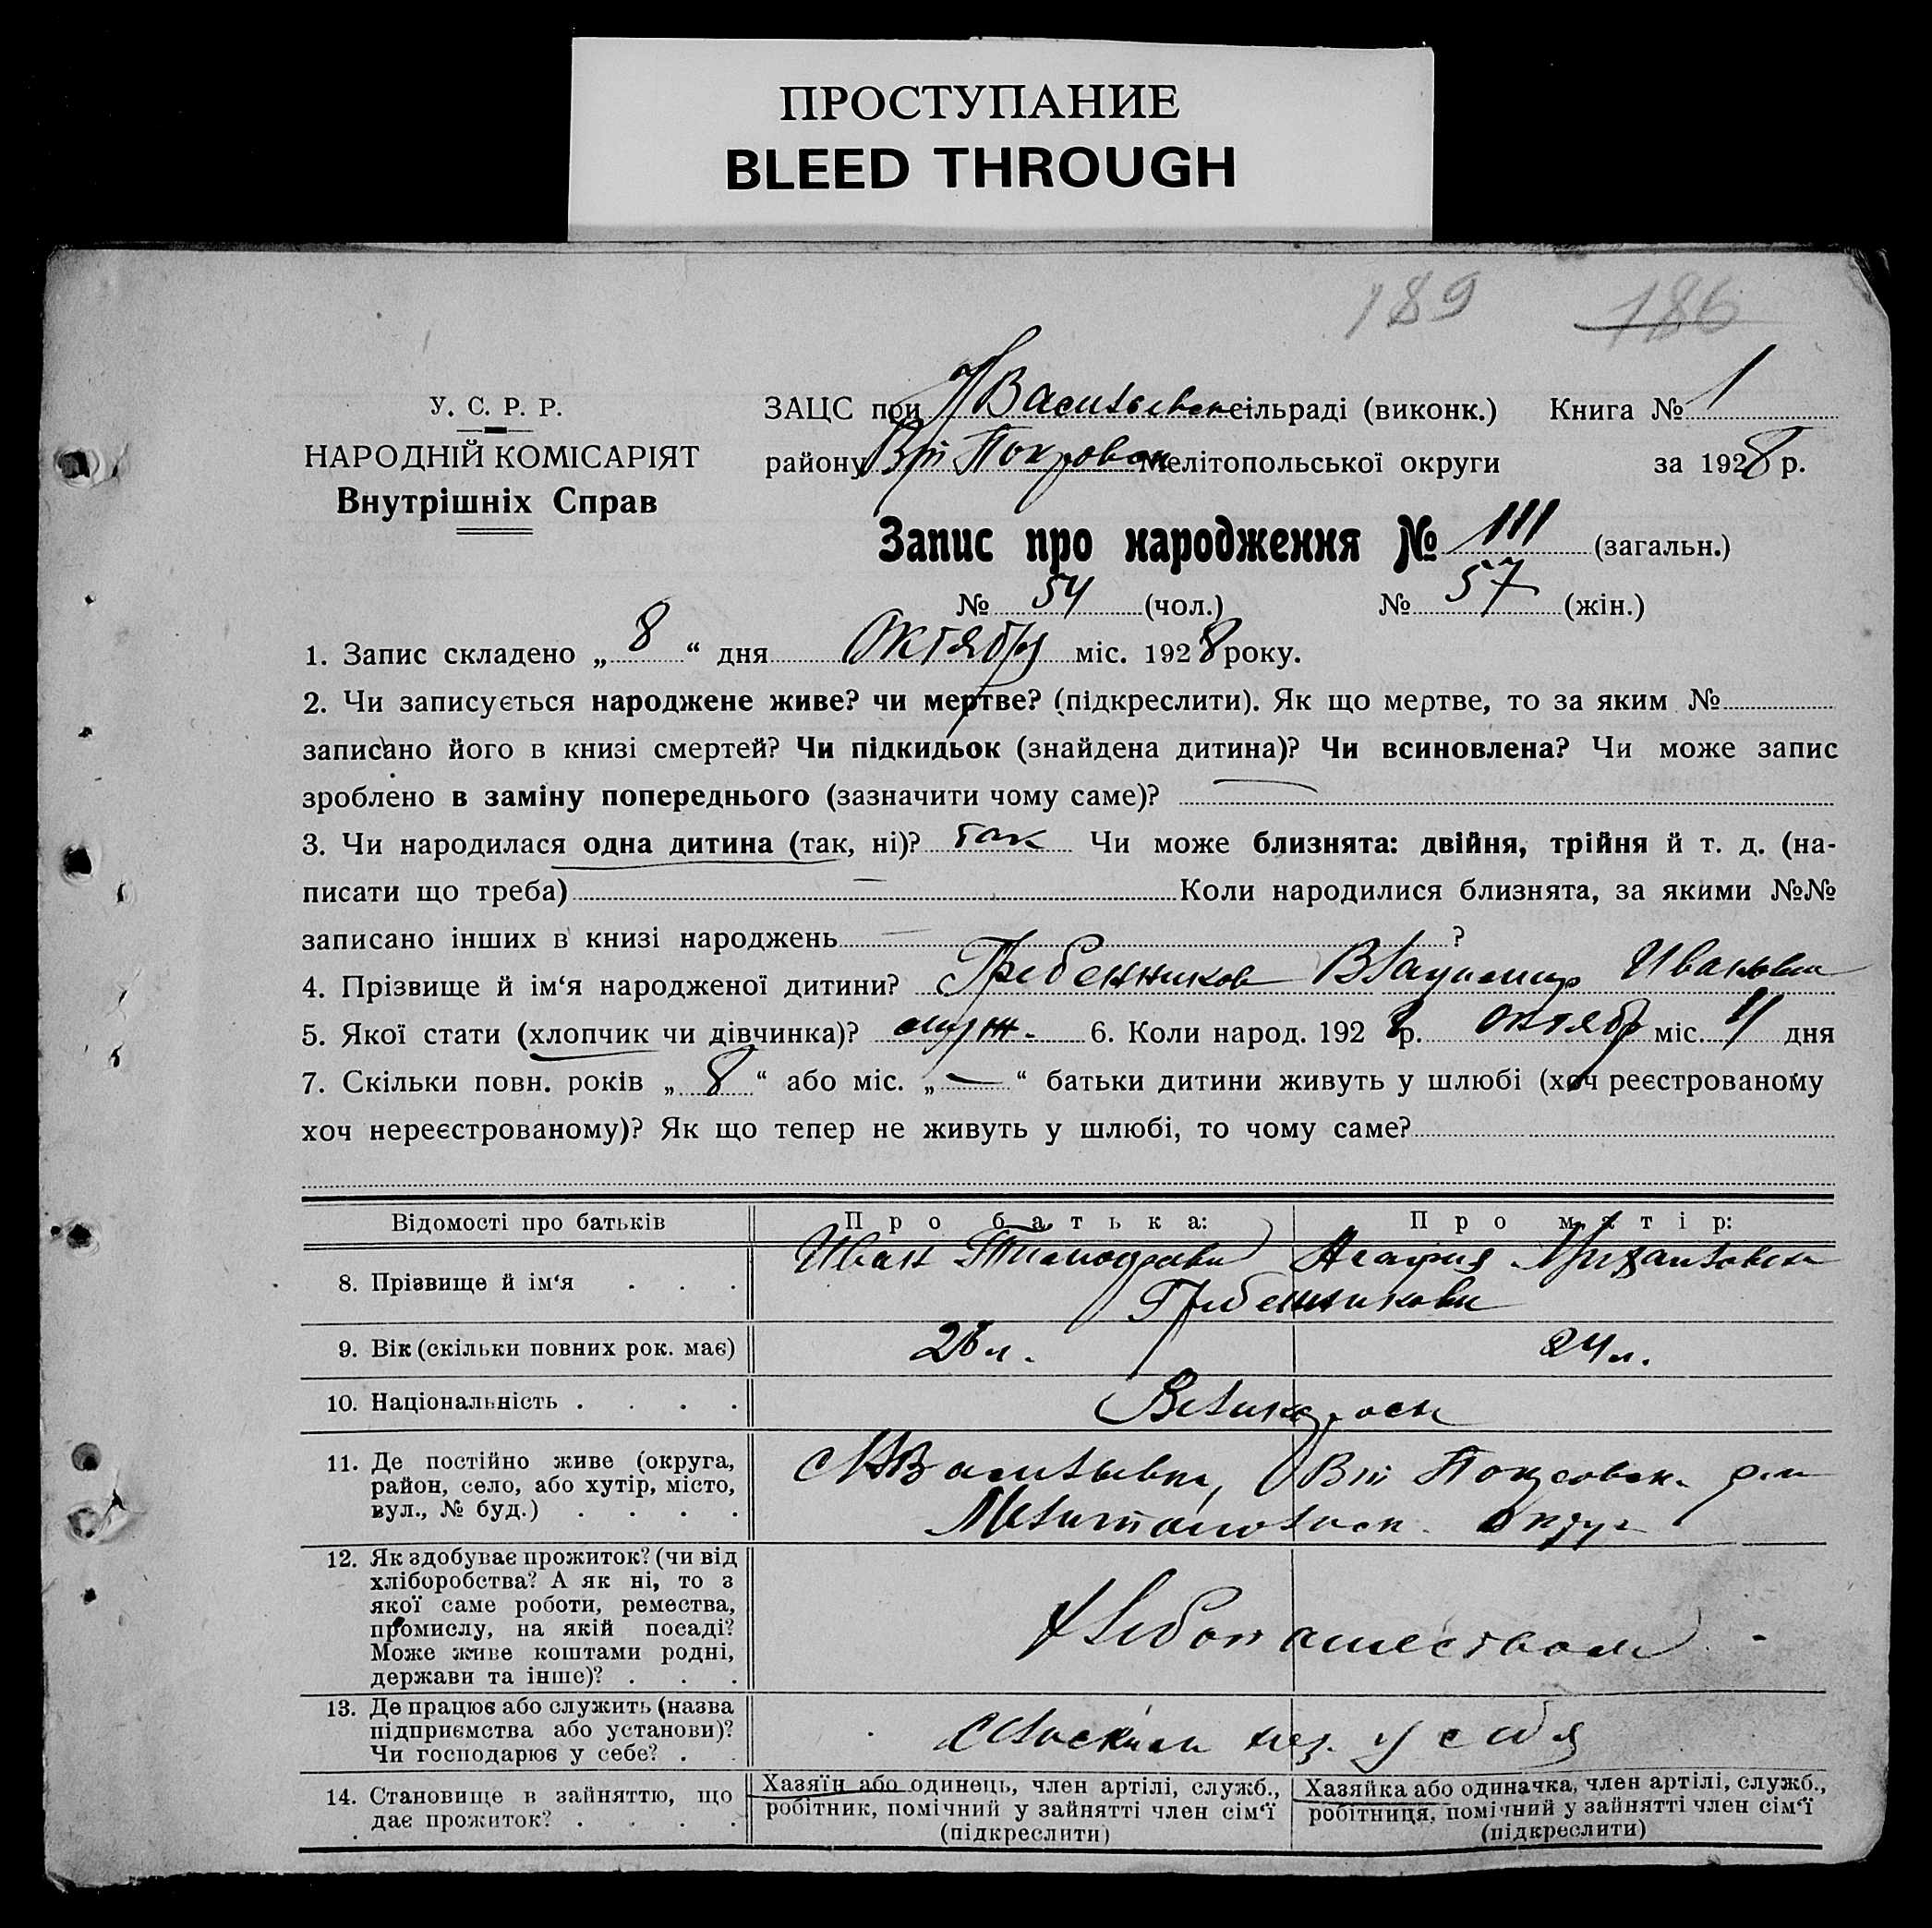 ПРОСТУПАНИЕ
BLEED THROUGH
189 186
У. С. Р. Р.
НАРОДНІЙ КОМІСАРІЯТ
Внутрішніх Справ
ЗАЦС при сільраді (виконк.) Книга № 1
району Покровск Мелітопольської округи за 1928 р.
Запис про народження № 111 (загальн.)
№ 54 (чол.) № 57 (жін.)
1. Запис складено „ 8 “ дня Октября міс. 1928 року.
2. Чи записується народжене живе? чи мертве? (підкреслити). Як що мертве, то за яким №
записано його в книзі смертей? Чи підкидьок (знайдена дитина)? Чи всиновлена? Чи може запис
зроблено в заміну попереднього (зазначити чому саме)? —
3. Чи народилася одна дитина (так, ні)? так Чи може близнята: двійня, трійня й т. д. (на-
писати що треба) — Коли народилися близнята, за якими №№
записано інших в книзі народжень — ?
4. Прізвище й ім‘я народженої дитини? Гребенников Владимир Иванович
5. Якої стати (хлопчик чи дівчинка)? муж. 6. Коли народ. 1928 р. Октябр міс. 4 дня
7. Скільки повн. років „ 8 “ або міс. „ — “ батьки дитини живуть у шлюбі (хоч реєстрованому
хоч нереєстрованому)? Як що тепер не живуть у шлюбі, то чому саме?
Відомості про батьків Про батька: Про матір:
8. Прізвище й ім‘я . . . Иван Тимофеевич
Гребенниковы
9. Вік (скільки повних рок. має) 24 л.
10. Національність . . . . Великоросы
11. Де постійно живе (округа,
район, село, або хутір, місто,
вул., № буд.) . . . .
Покровск.
Мелитопольск. округ
12. Як здобуває прожиток? (чи від
хліборобства? А як ні, то з
якої саме роботи, ремества,
промислу, на якій посаді?
Може живе коштами родні,
держави та інше)? . . .
Хлебопашеством
13. Де працює або служить (назва
підприємства або установи)?
Чи господарює у себе? . .
у себя
14. Становище в зайняттю, що
дає прожиток? . . . .
Хазяїн або одинець, член артілі, служб.,
робітник, помічний у зайнятті член сім‘ї
(підкреслити)
Хазяйка або одиначка, член артілі, служб.,
робітниця, помічний у зайнятті член сім‘ї
(підкреслити)